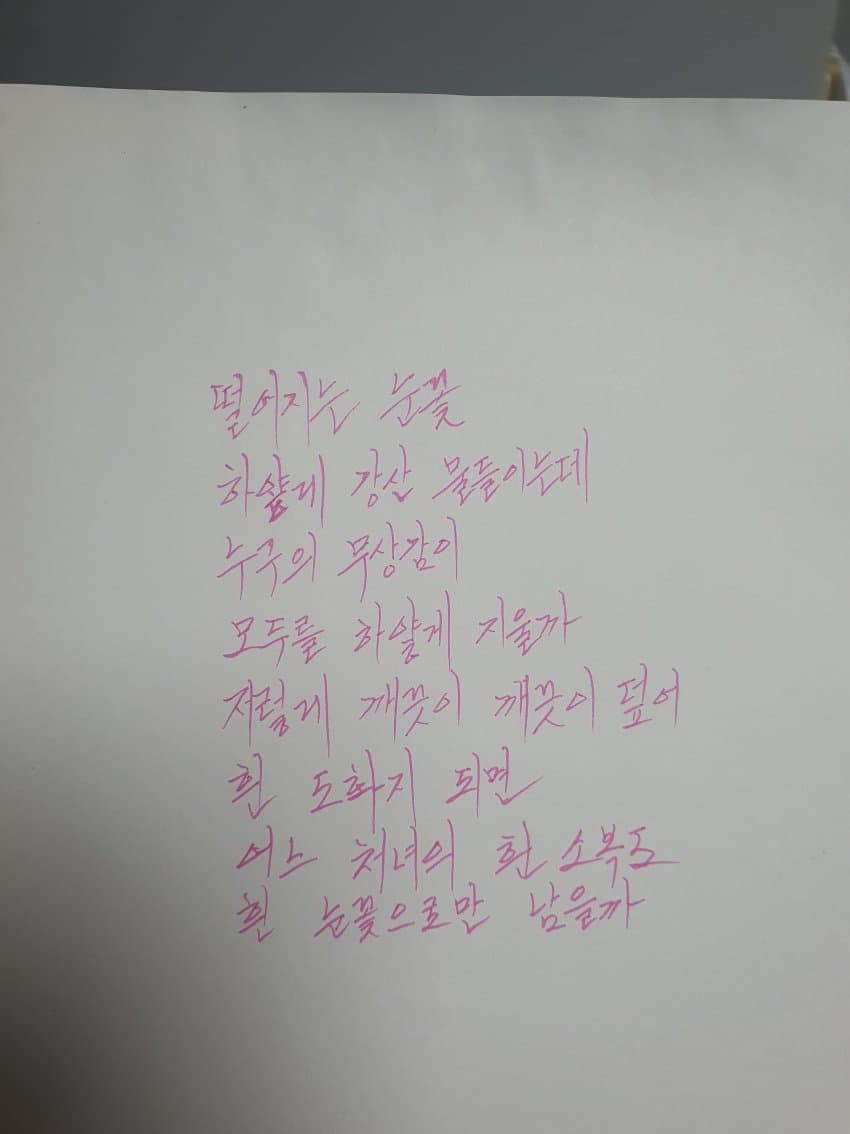 떨어지는 눈꽃
하얗게 강산 물들이는데
누구의 무상감이
모두를 하얗게 지울까
저렇게 깨끗이 깨끗이 덮어
흰 도화지 되면
어느 처녀의 흰 소복도
흰 눈꽃으로만 남을까